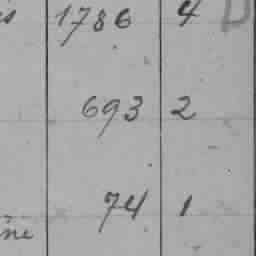 1786 4
693 2
74 1